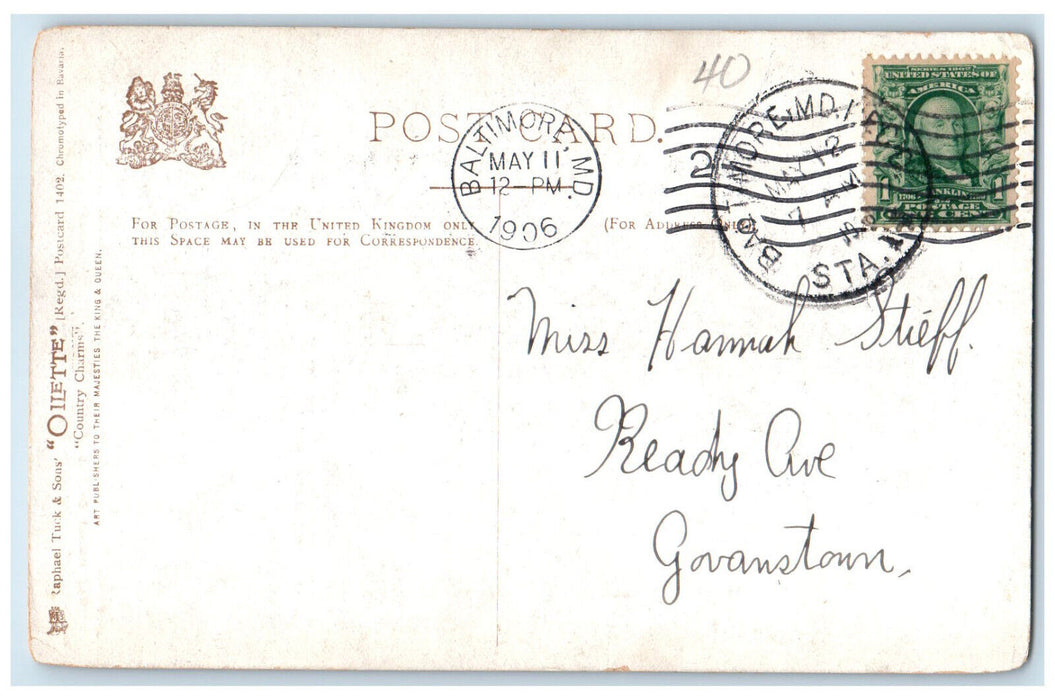 40
POST CARD.
BALTIMORE, MD.
MAY 11
12-PM
1906
2
BALTIMORE, MD.
MAY 12
7 AM
STA.
SERIES 1902
UNITED STATES OF AMERICA
1706
FRANKLIN
POSTAGE
FOR POSTAGE, IN THE UNITED KINGDOM ONLY
THIS SPACE MAY BE USED FOR CORRESPONDENCE.
(FOR ADDRESS ONLY)
Miss Hannah Stieff.
Ready Ave
Govanstown,
Raphael Tuck & Sons' "OILETTE" [Regd.] Postcard 1402. Chromotyped in Bavaria.
"Country Charms".
ART PUBLISHERS TO THEIR MAJESTIES THE KING & QUEEN.